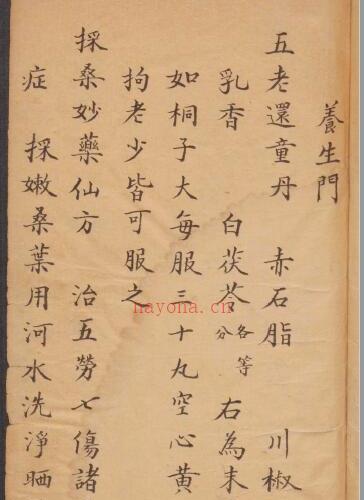 養生門
五老還童丹 赤石脂 川椒
乳香 白茯苓各等分 右為末
如桐子大每服三十丸空心黄
拘老少皆可服之
採桑妙藥仙方 治五勞七傷諸
症 採嫩桑葉用河水洗淨晒
nayona.cn